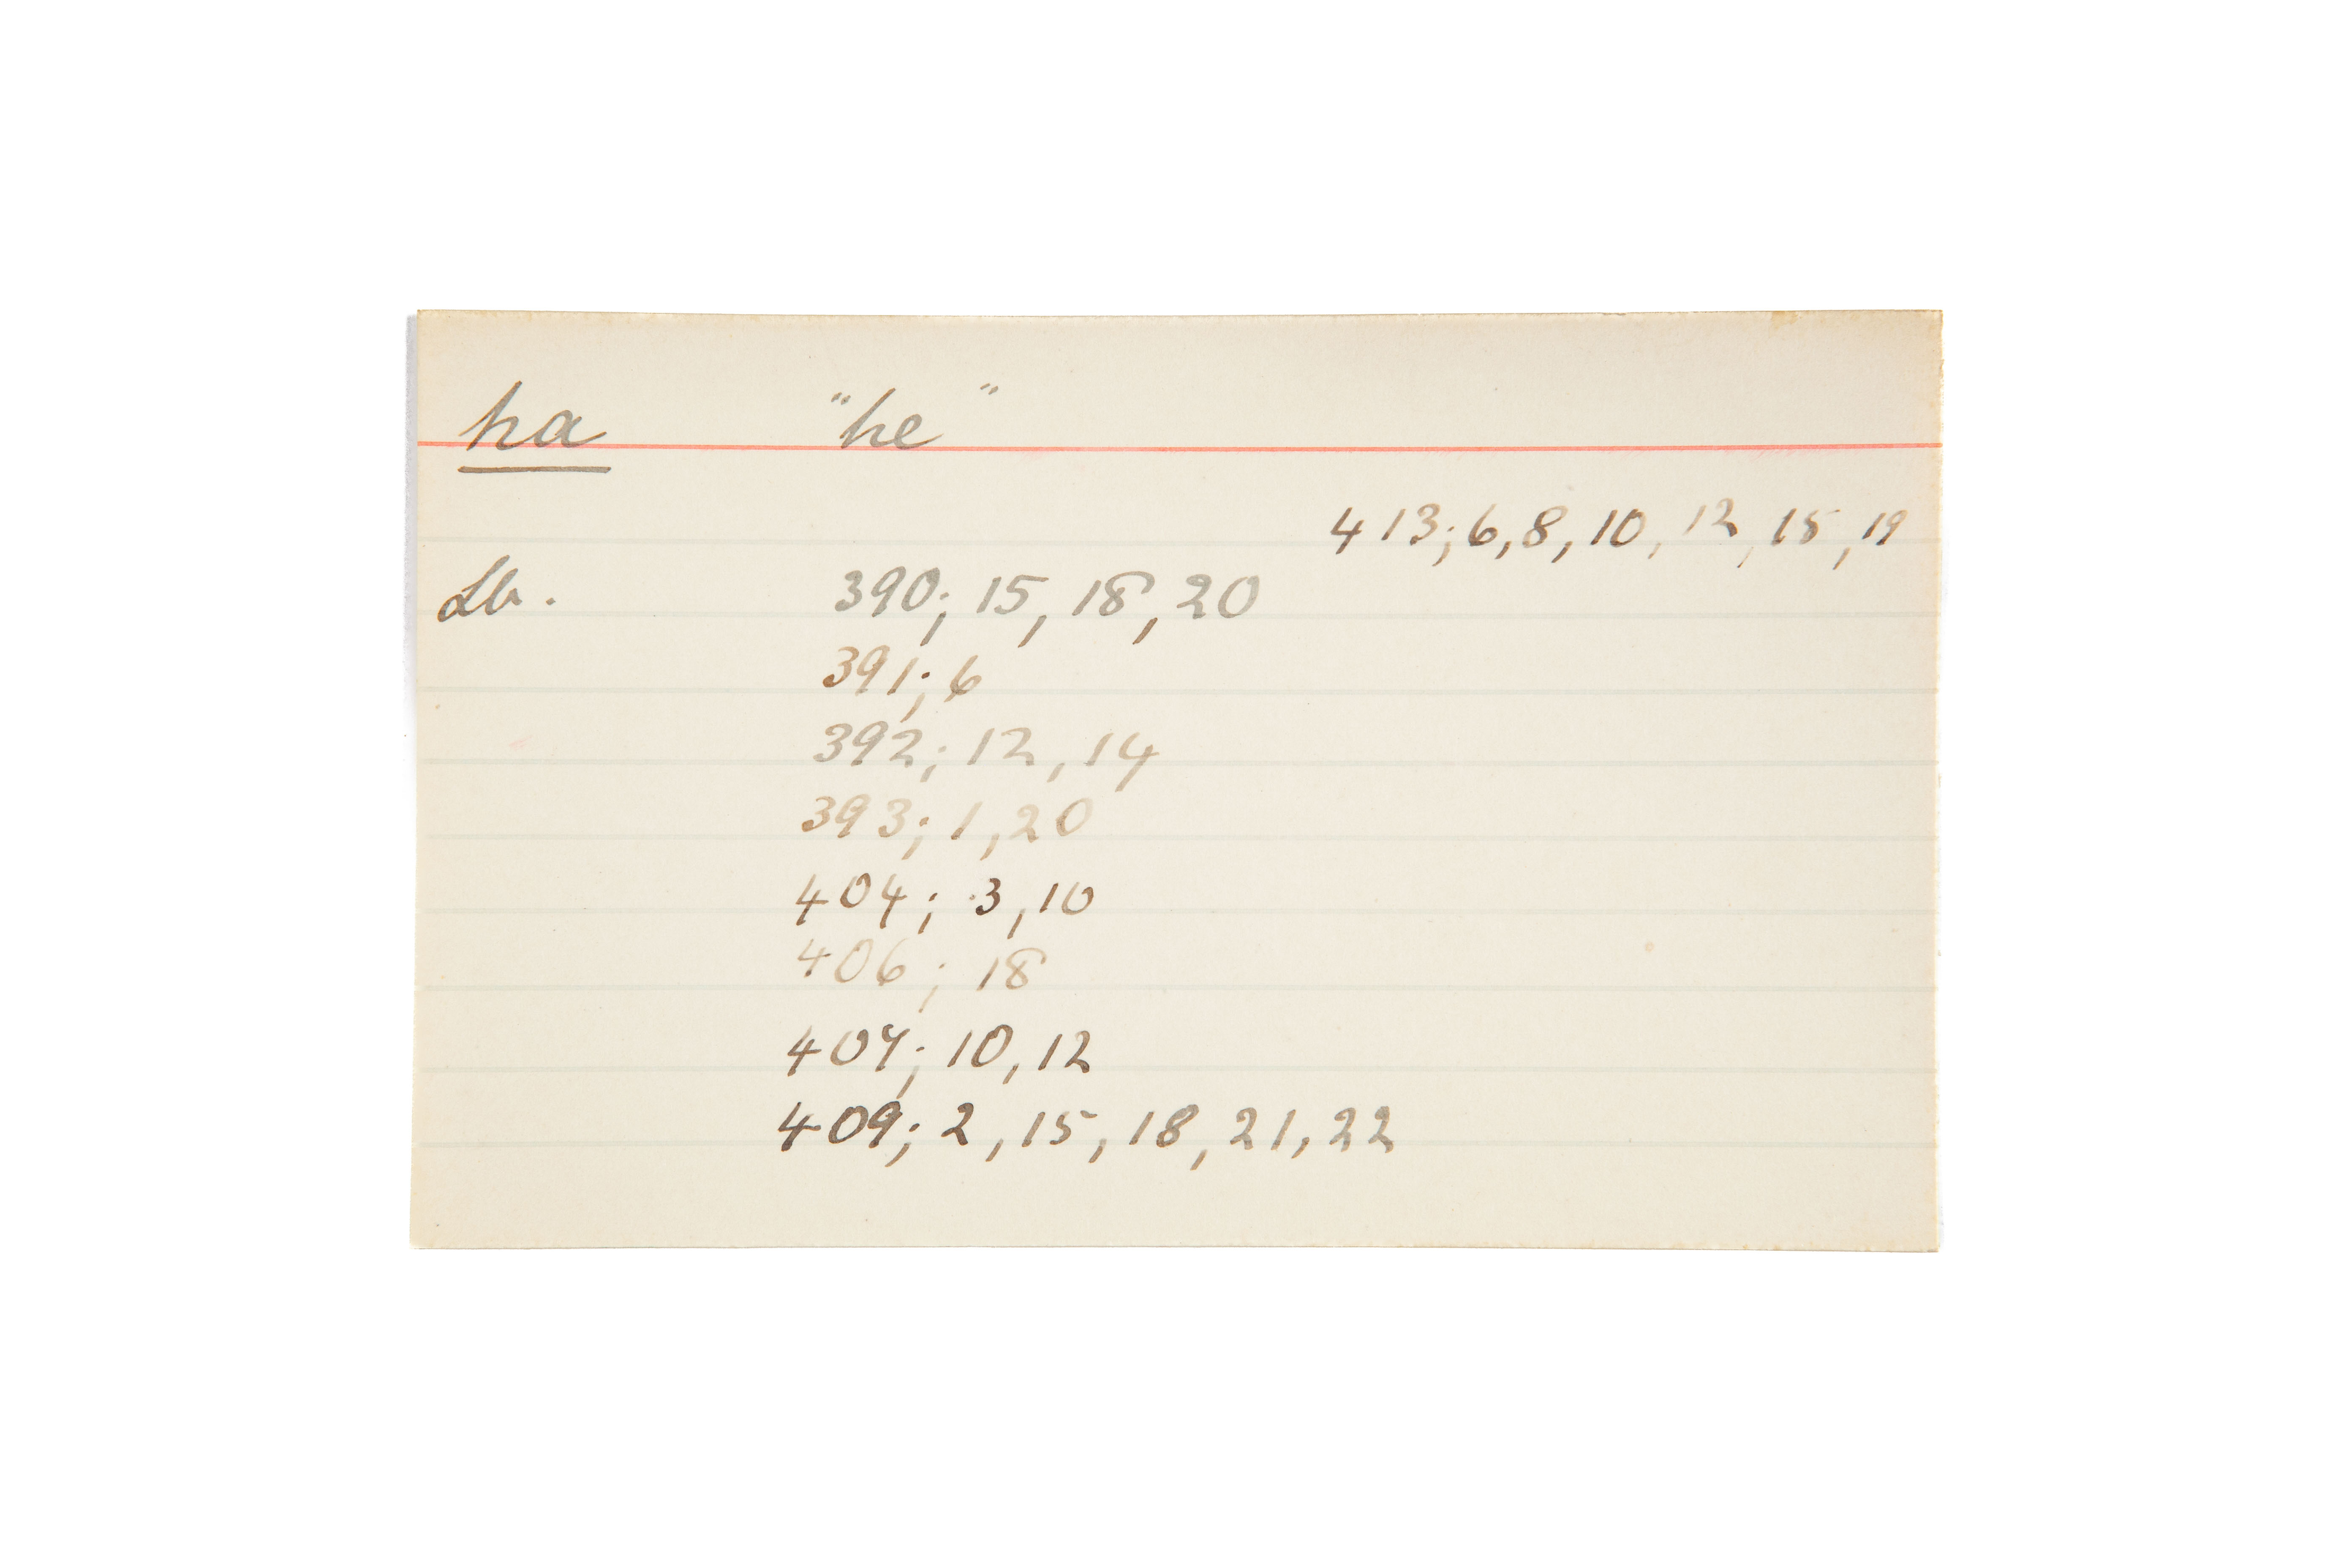 ha "he"
413; 6, 8, 10, 12, 15, 19
Lb. 390; 15, 18, 20
391; 6
392; 12, 14
393; 1, 20
404; 3, 10
406; 18
407; 10, 12
409; 2, 15, 18, 21, 22